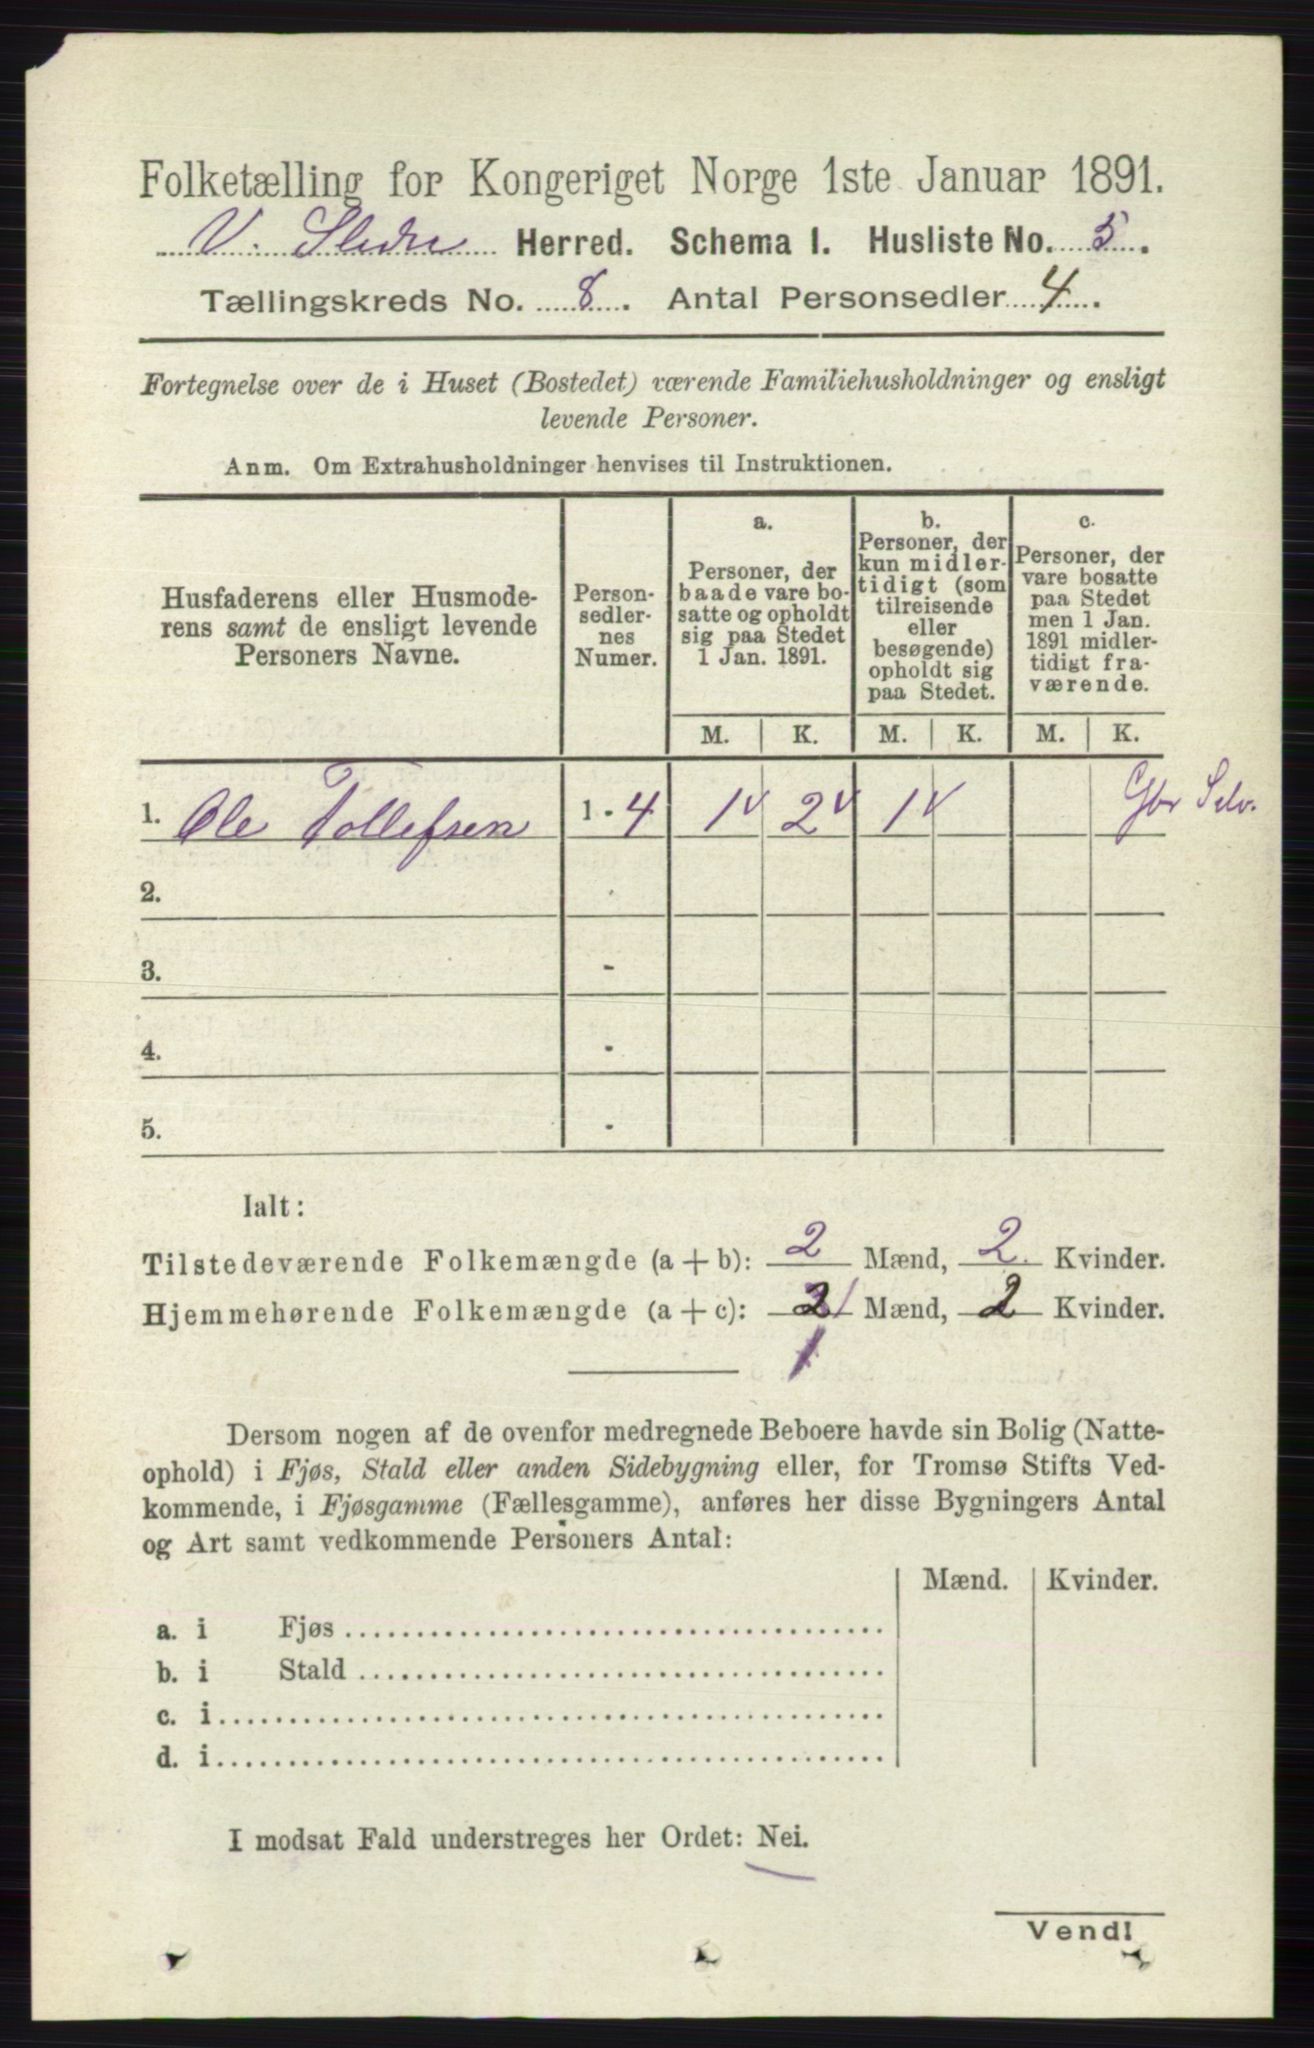 Folketælling for Kongeriget Norge 1ste Januar 1891.
V. Slidre Herred. Schema I. Husliste No. 5.
Tællingskreds No. 8. Antal Personsedler 4.
Fortegnelse over de i Huset (Bostedet) værende Familiehusholdninger og ensligt
levende Personer.
Anm. Om Extrahusholdninger henvises til Instruktionen.
Husfaderens eller Husmode-
rens samt de ensligt levende
Personers Navne.
Person-
sedler-
nes
Numer.
a.
Personer, der
baade vare bo-
satte og opholdt
sig paa Stedet
1 Jan. 1891.
b.
Personer, der
kun midler-
tidigt (som
tilreisende
eller
besøgende)
opholdt sig
paa Stedet.
c.
Personer, der
vare bosatte
paa Stedet
men 1 Jan.
1891 midler-
tidigt fra-
værende.
M. K. M. K. M. K.
1. Ole Tollefsen 1 - 4 1 2 1 Gbr Selv.
2. -
3. -
4. -
5. -
Ialt:
Tilstedeværende Folkemængde (a + b): 2 Mænd, 2 Kvinder.
Hjemmehørende Folkemængde (a + c): 2 1 Mænd, 2 Kvinder.
1
Dersom nogen af de ovenfor medregnede Beboere havde sin Bolig (Natte-
ophold) i Fjøs, Stald eller anden Sidebygning eller, for Tromsø Stifts Ved-
kommende, i Fjøsgamme (Fællesgamme), anføres her disse Bygningers Antal
og Art samt vedkommende Personers Antal:
Mænd. Kvinder.
a. i Fjøs
b. i Stald
c. i
d. i
I modsat Fald understreges her Ordet: Nei.
Vend!